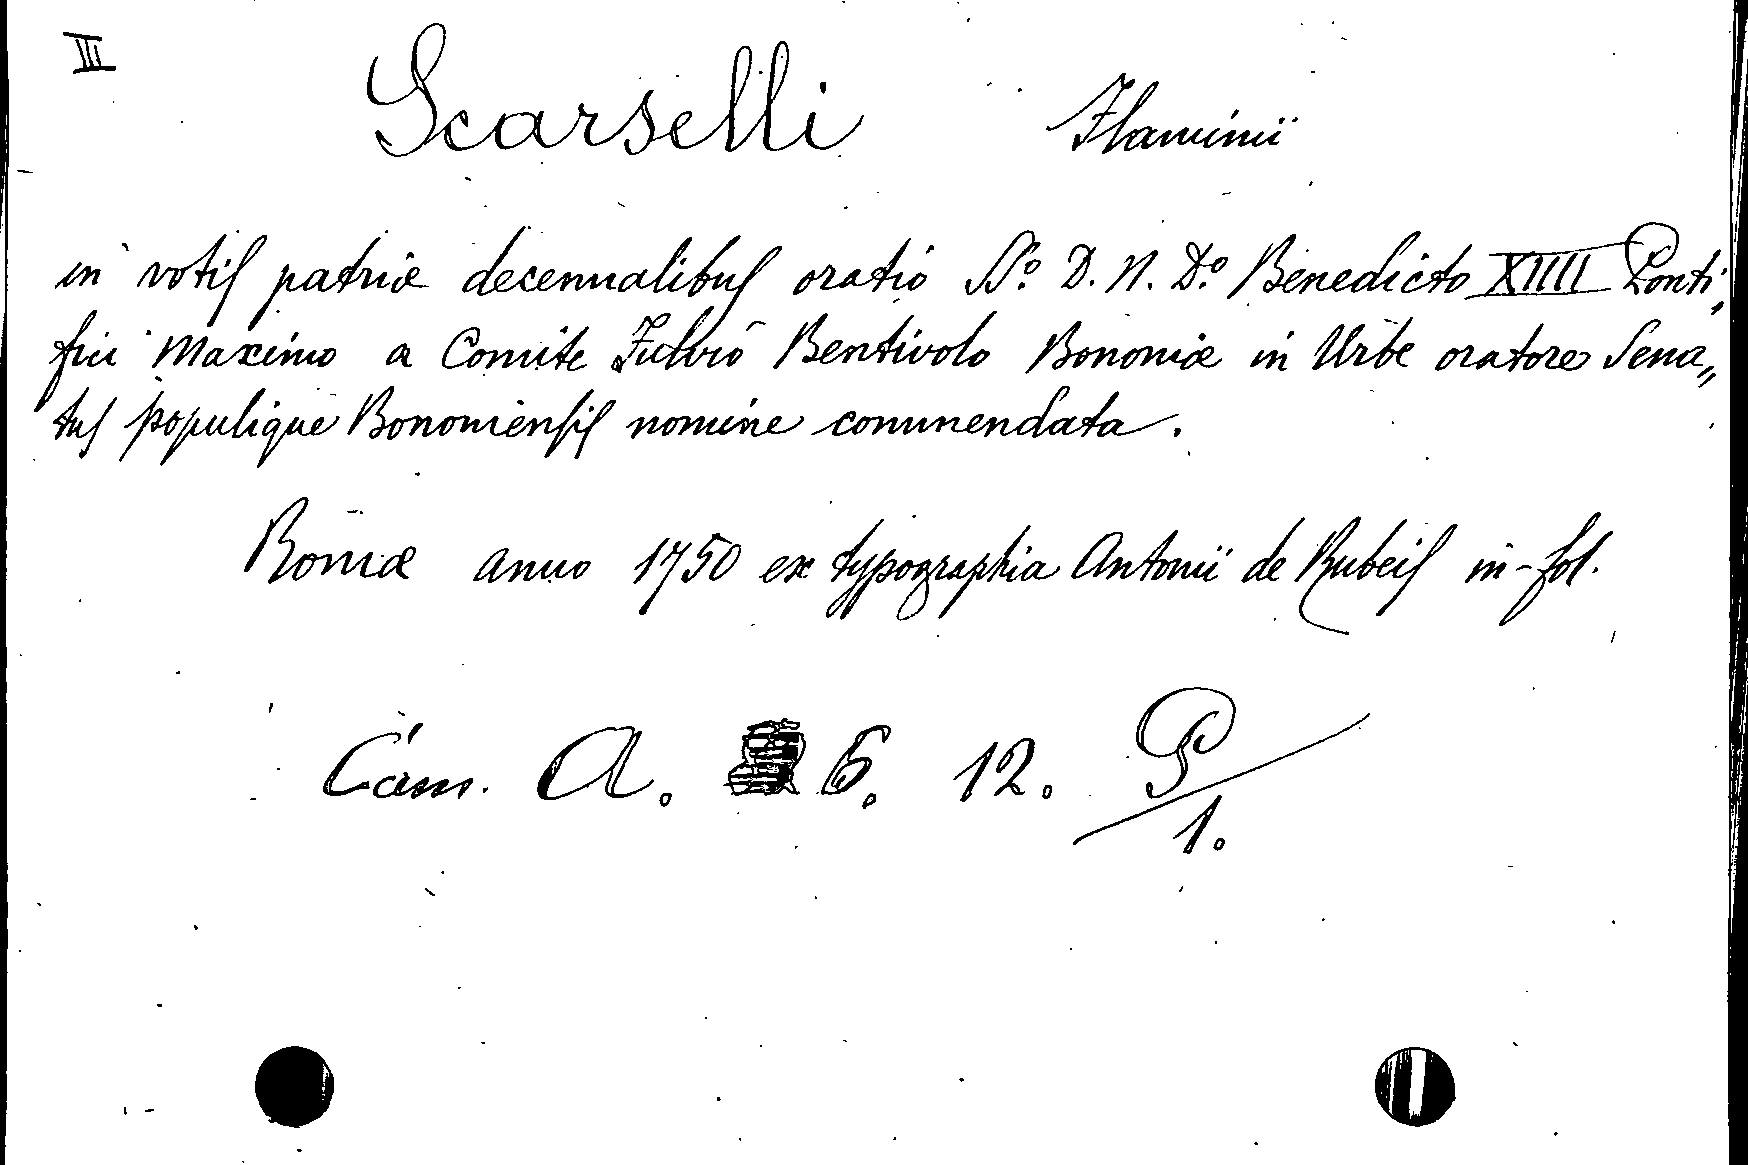 III
Scarselli Flaminii
in votis patriæ decennalibus oratio SSº. D. N. Dº. Benedicto XIIII Ponti,
fici Maximo a Comite Fulvio Bentivolo Bononiæ in Urbe oratore Sena„
tus populique Bononiensis nomine commendata.
Romæ anno 1750 ex typographia Antonii de Rubeis in-fol.
Cam. A. 6. 12. P/1.